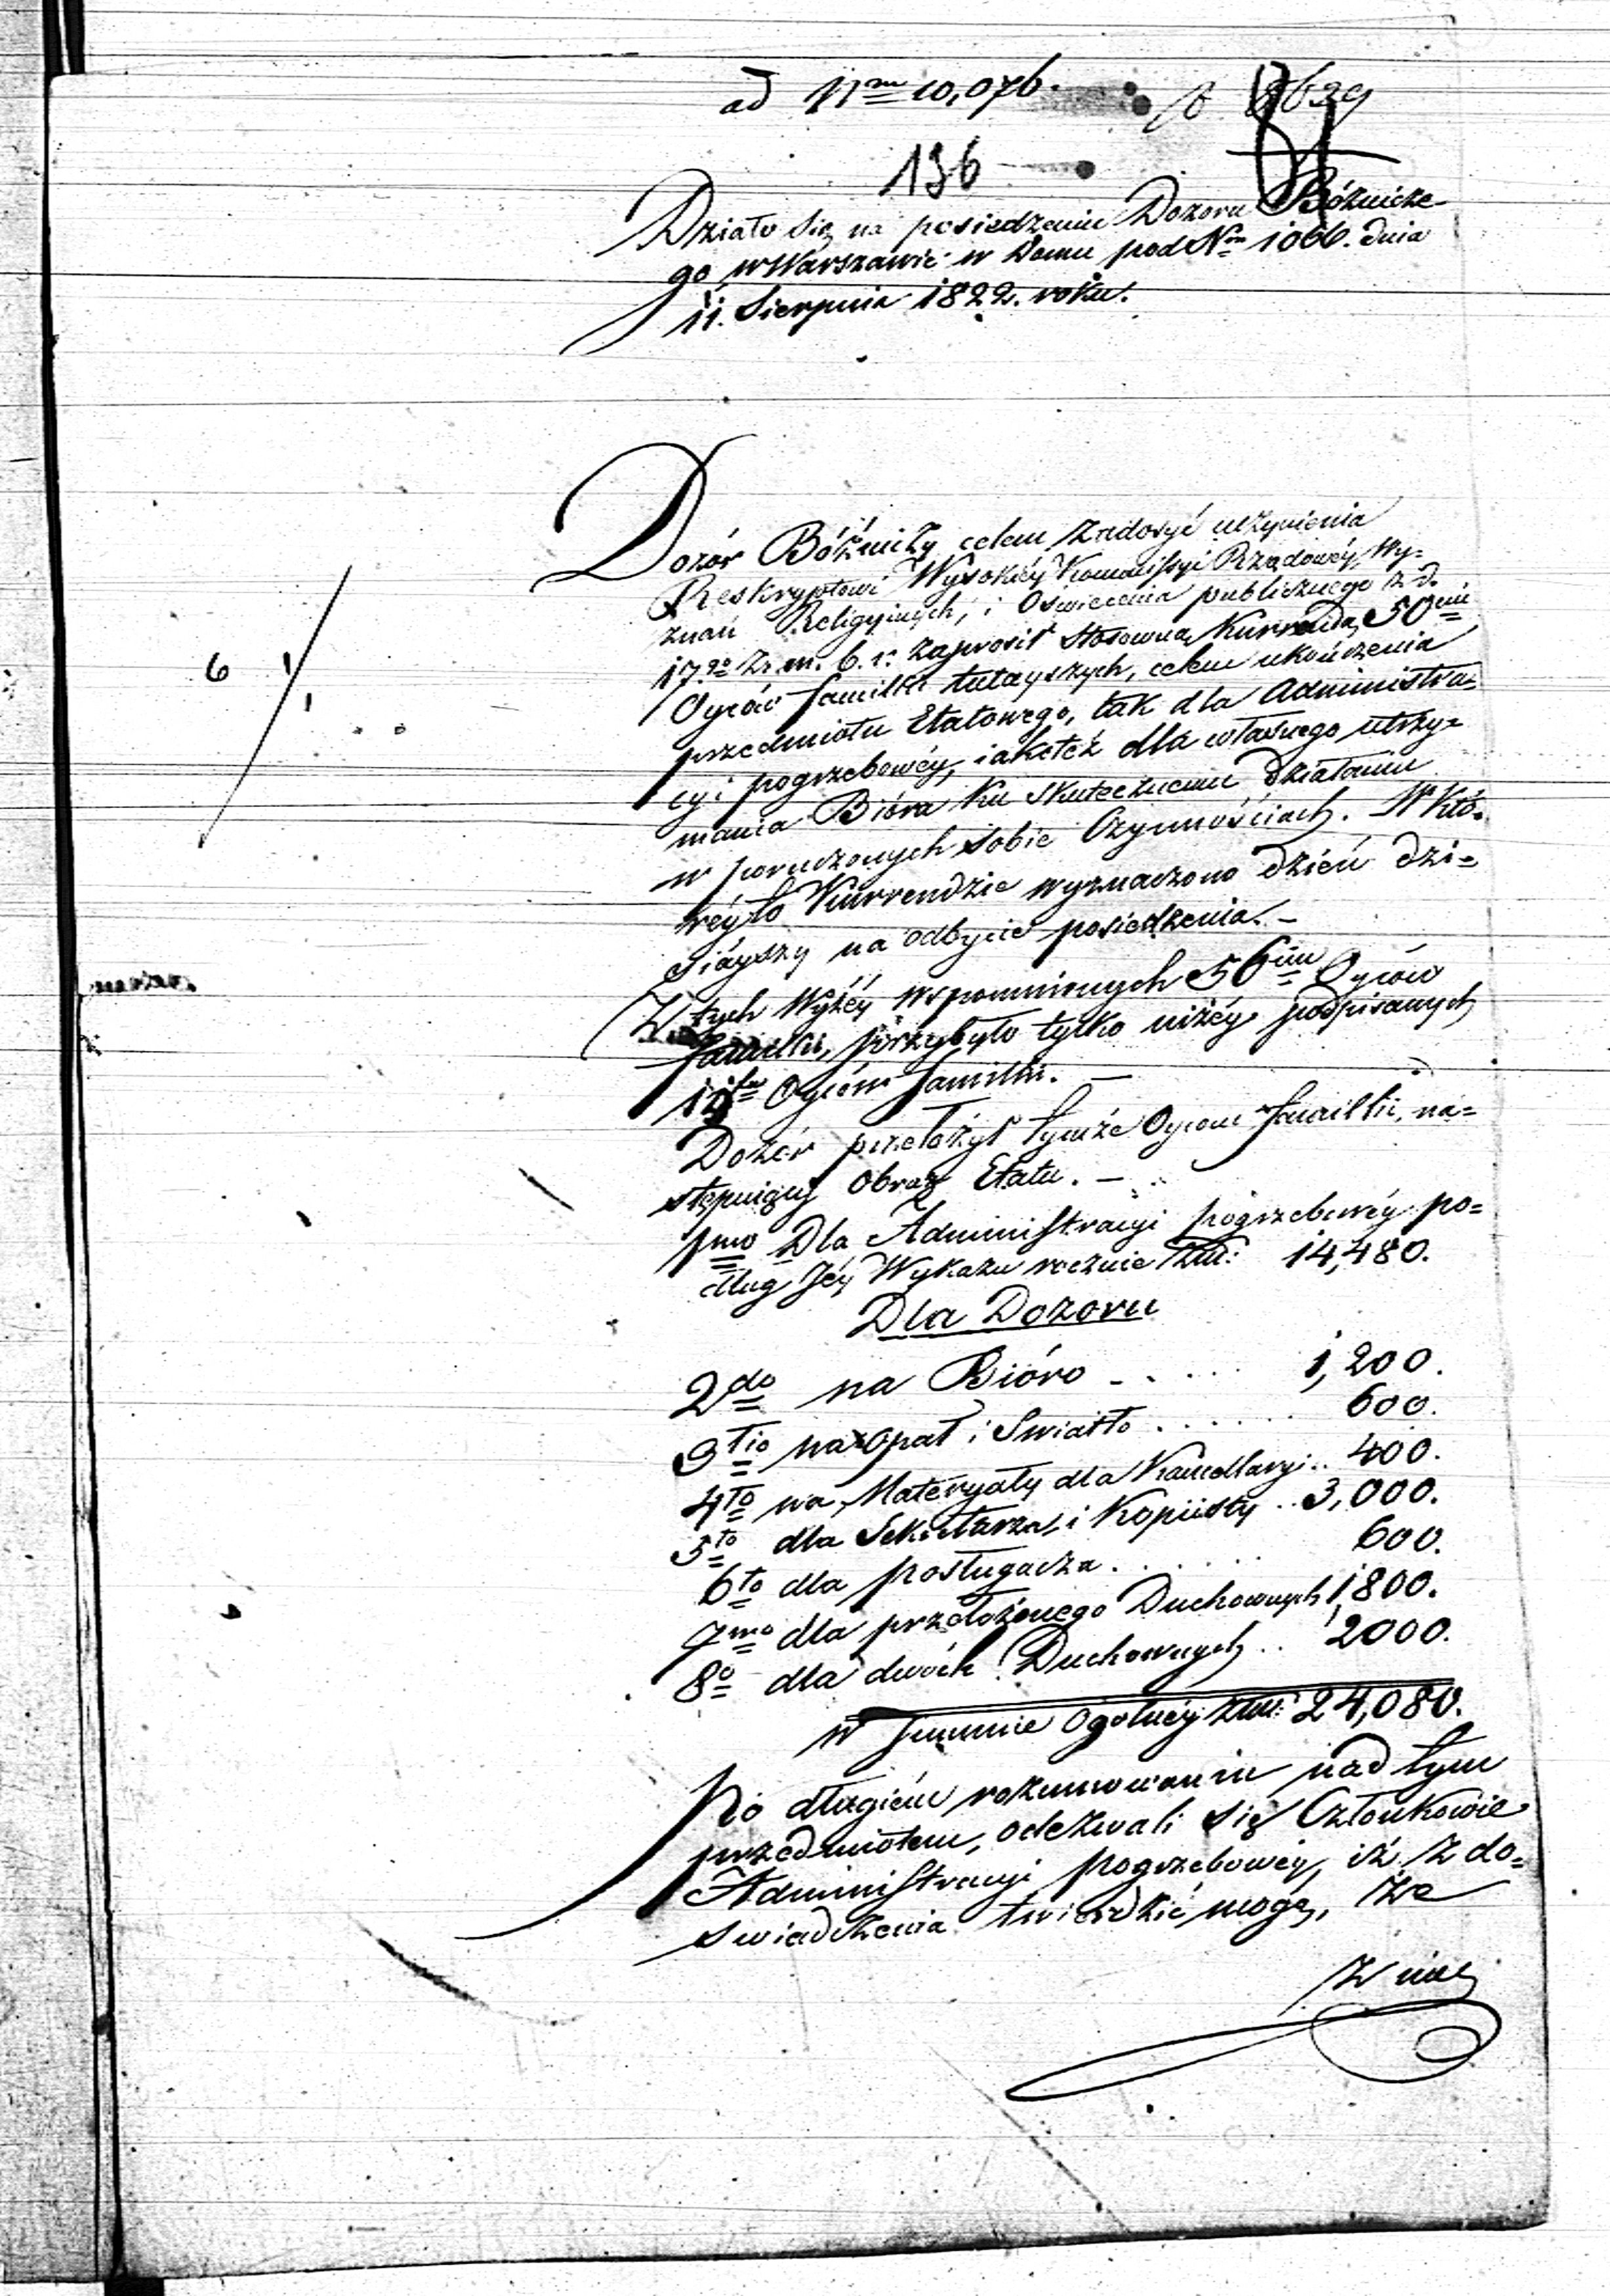 ad Nrm 10,076.
136
Działo się na posiedzeniu Dozoru Bóźnicze-
go w Warszawie w Domu pod Nrm 1066. dnia
11. Sierpnia 1822. roku.
Dozór Bóźniczy celem zadosyć uczynienia
Reskryptowi Wysokiéy Kommissyi Rządowéy Wy-
znań Religijnych, i Oświecenia publicznego z d.
17go z. m. b. r. zaprosił stosowną Kurrendą 50ciu
Oyców familii tutayszych, celem ukończenia
przedmiotu Etatowego, tak dla Administra=
cyi pogrzebowéy, iakoteż dla własnego utrzy=
mania Bióra ku skutecznemu działaniu
w poruczonych sobie Czynnościach. W któ-
réyto Kurrendzie wyznaczono dzień dzi=
siéyszy na odbycie posiedzenia. –
Z tych wyżéy wspomnionych 50ciu Oyców
familii, przybyło tylko niżéy podpisanych
Oyców familii. —
Dozór przełożył tymże Oycom familii, na=
stępuiący obraz Etatu. —
1mo Dla Administracyi pogrzebowéy po=
dług Jéy Wykazu rocznie Złt: 14,480.
Dla Dozoru
2do na Bióro - . . . . 1,200.
3tio na opał i Swiatło . . . . . . 600.
4to na Materyały dla Kancellaryi . . 400.
5to dla Sekretarza i Kopiisty . . 3,000.
6to dla posługacza . . . . . . 600.
7mo dla przełożonego Duchownych 1,800.
8o dla dwóch Duchownych . . 2000.
w summie ogolnéy Złt: 24,080.
Po długiém rozumowaniu nad tym
przedmiotem, odezwali się Członkowie
Administracyi pogrzebowéy, iż z do=
swiadczenia twierdzić mogą, że